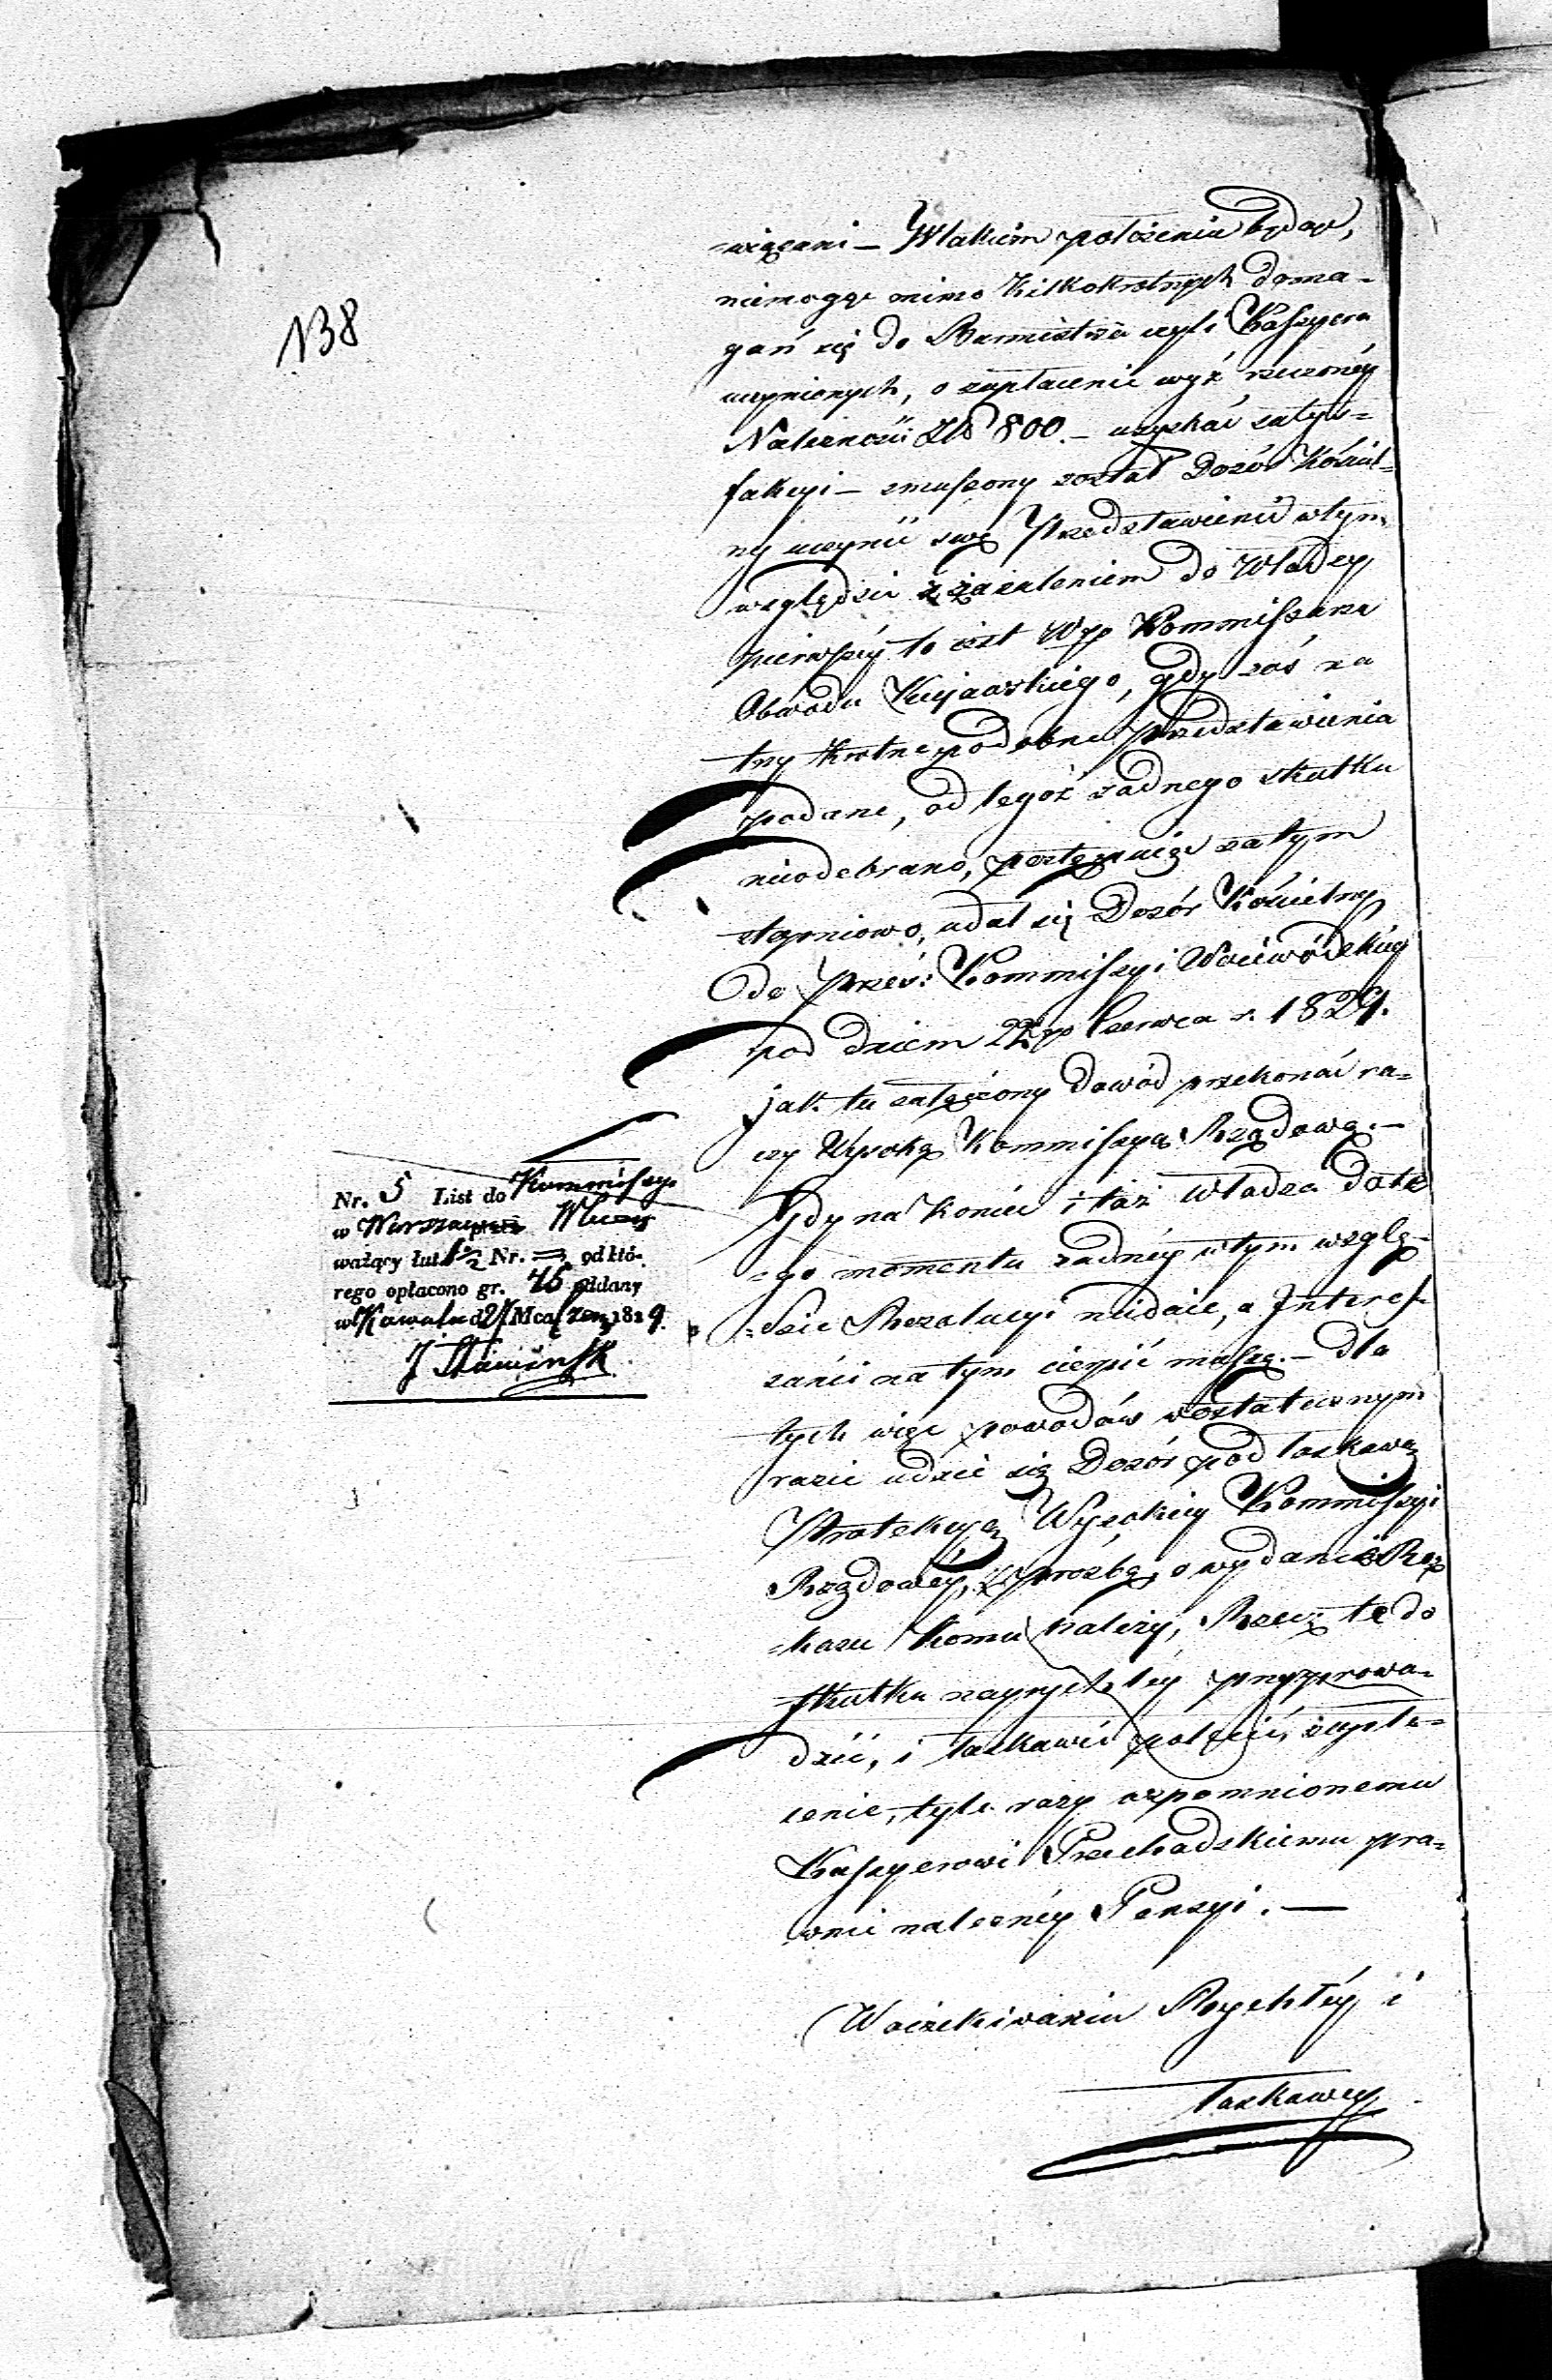 138
-wiązani – W takiém położeniu będąc,
niemogąc mimo kilkokrotnych doma-
gań się do Burmistrza czyli Kassyera
uczynionych, o zapłacenie wyż rzeczonéy
Należności Złł 800. – uzyskać satys=
fakcyi – zmuszony został Dozór Kościel=
ny uczynić swę Przedstawienie w tym
względzie z zażaleniem do Władzy
pierwszéy to iest Wgo Kommissarza
Obwodu Kujawskiego, gdy zaś na
trzy krotne podobne przedstawienia
podane, od tegoż żadnego skutku
nieodebrano, postępuiąc zatym
stopniowo, udał się Dozór Kościelny
do Prześ: Kommissyi Woiewódzkiey
pod dniem 22go Czerwca r. 1829.
jak tu załączony dowód przekonać ra=
czy Wysoką Kommissyą Rządową. –
Gdy na koniec i taż Władza dotą
=go momentu żadnéy w tym wzglę-
=dzie Rezolucyi niedaie, a Interes-
sańci na tym cierpić muszą. – dla
tych więc powodów w ostatecznym
razie udaie się Dozór pod łaskawą
Protekcyą Wysokiey Kommissyi
Rządowéy, z prośbą, o wydanie Roz
=kazu komu należy, Rzecz tę do
skutku nayrychléy przyprowa=
dzić, i łaskawie polecić, zapła=
cenie, tyle razy wspomnionemu
Kassyerowi Przechadzkiemu pra=
wnie należnéy Pensyi. —
W oczekiwaniu Rychłéy i
łaskawey
Nr. 5 List do Kommissyi
w Warszawie przez
ważący łut 1½ Nr. = od któ-
rego opłacono gr. 45 oddany
w Kowalu d 21 Mca 1829.